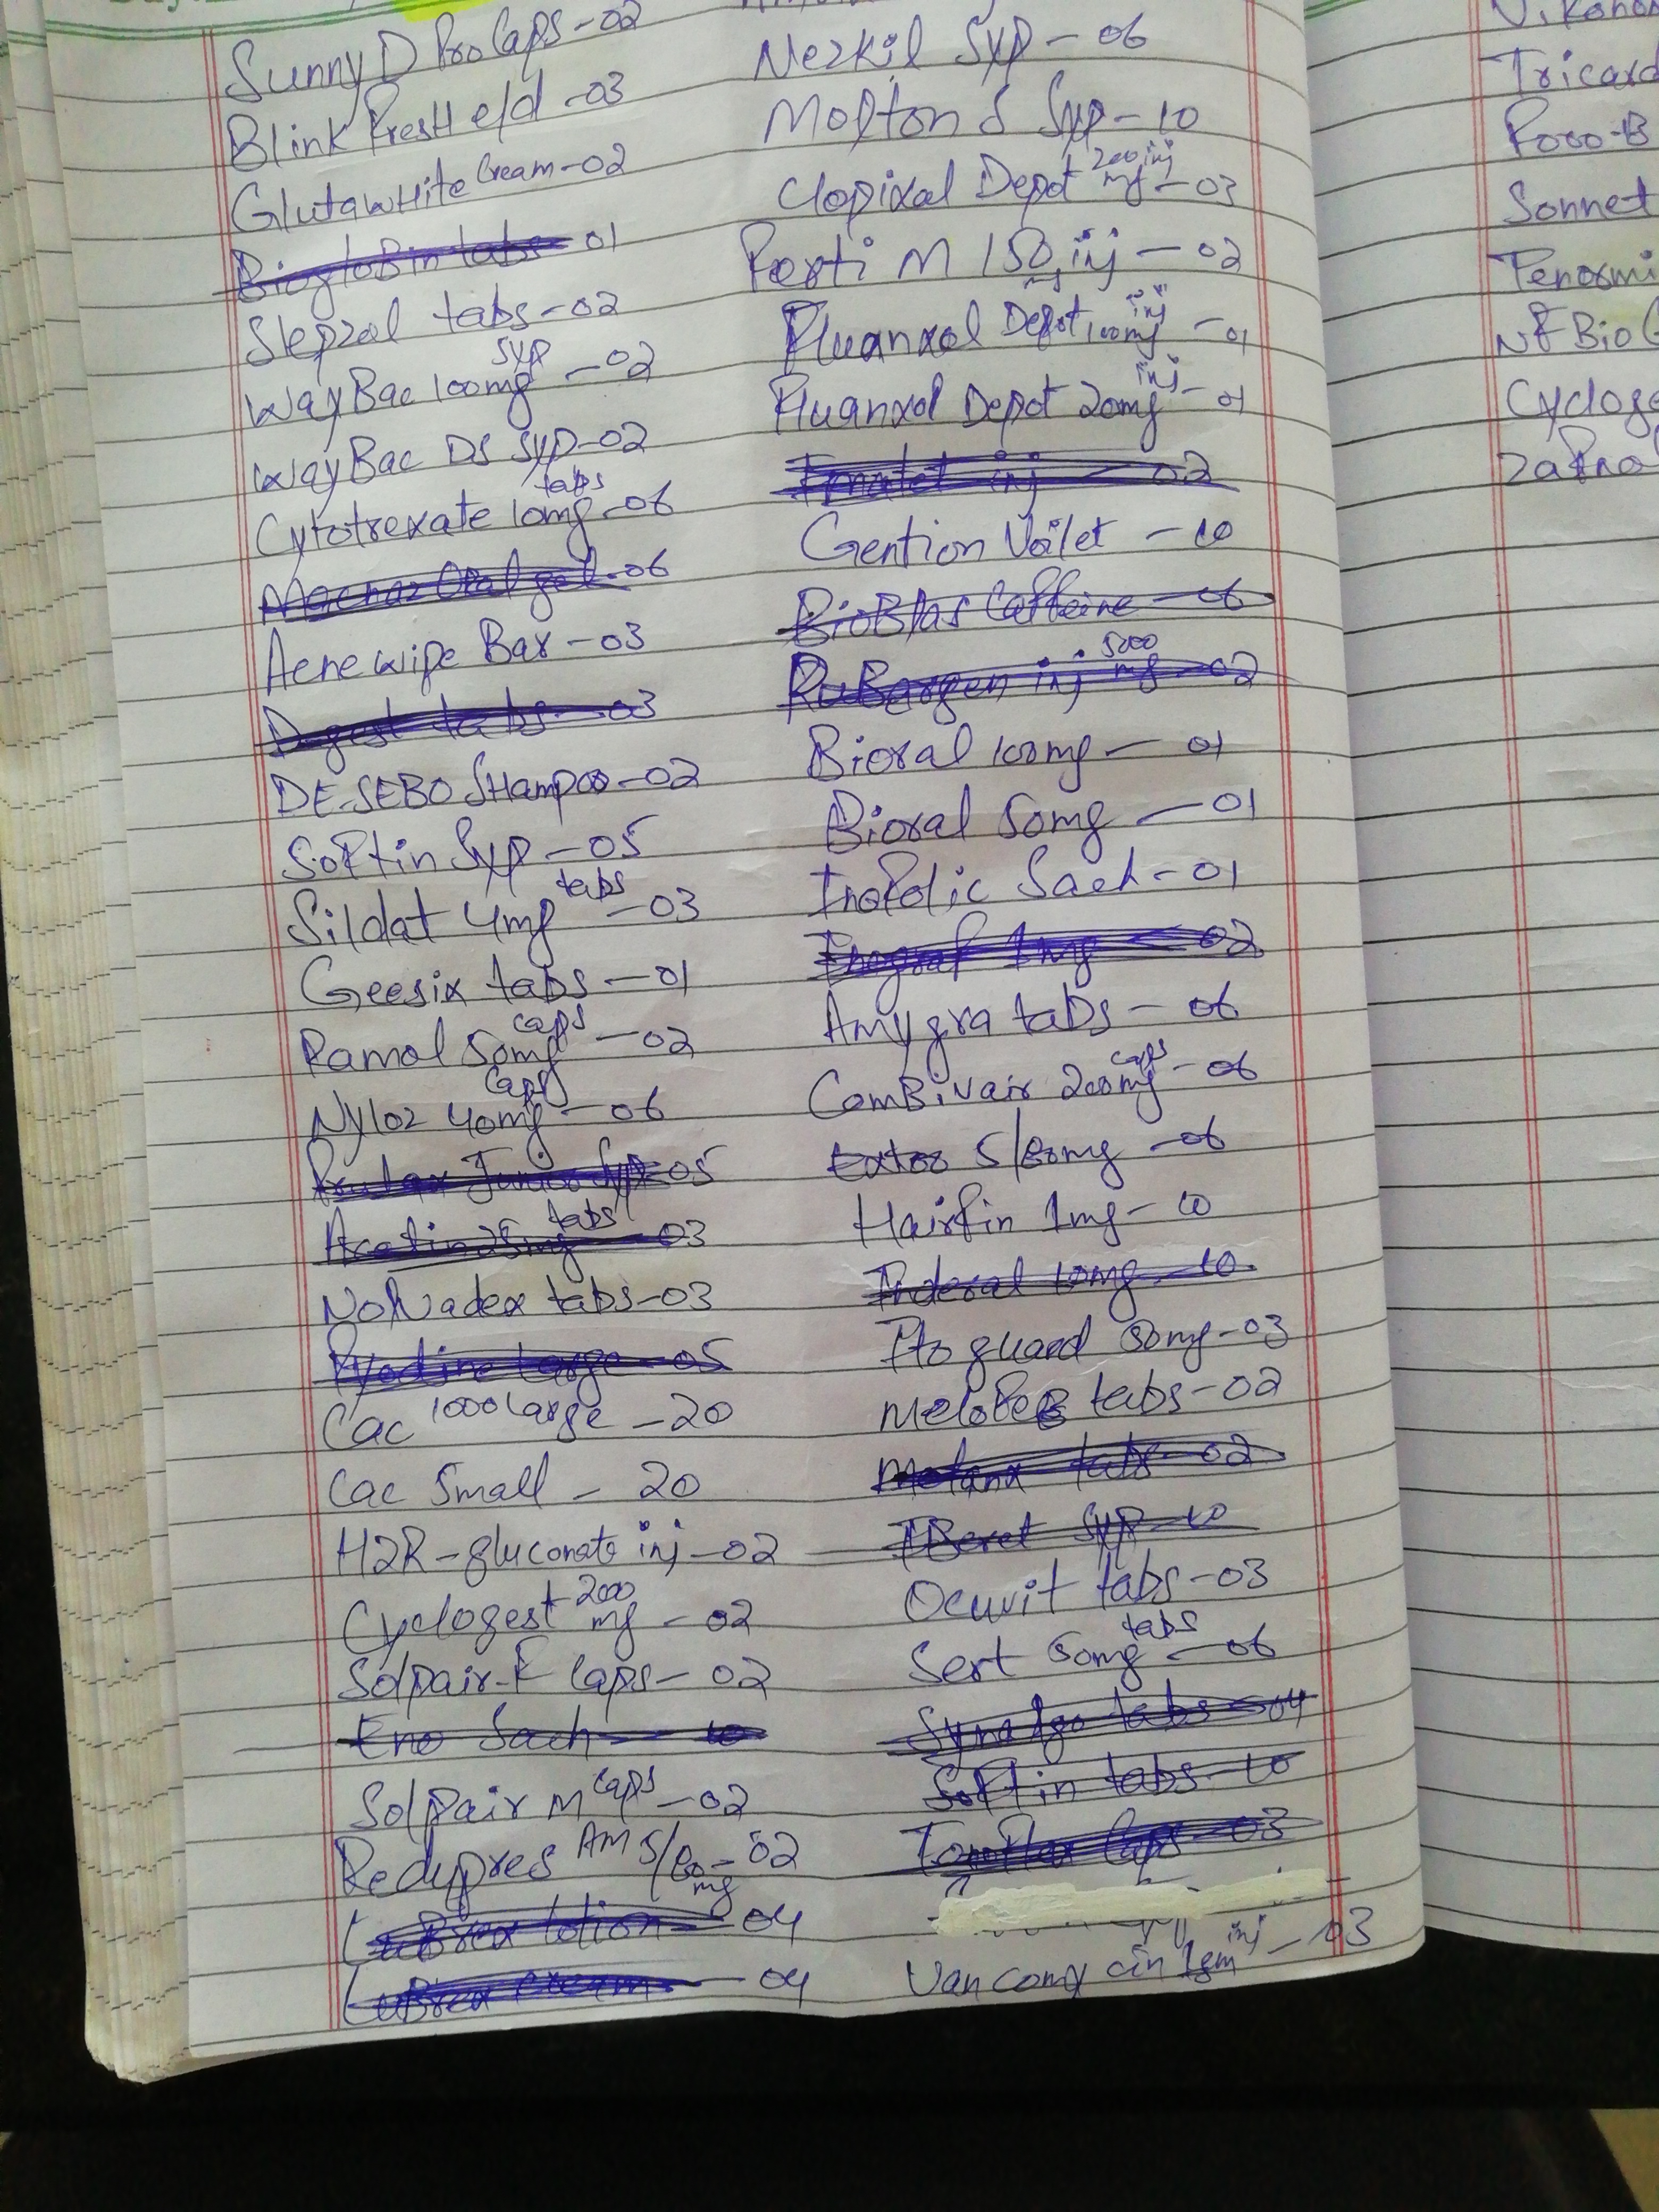 Sunny D Pro Caps - 02
Blink Fresh e/d - 03
Glutawhite Cream - 02
Bioglobin tabs - 01
Slepzol tabs - 02
WayBac 100mg syp - 02
WayBac DS syp - 02
Cytotrexate 10mg tabs - 06
Oral gel - 06
Acne wipe Bar - 03
tabs - 03
DE-SEBO SHampoo - 02
Softin Syp - 05
Sildat 4mg tabs - 03
Geesix tabs - 01
Ramol 50mg caps - 02
Nyloz 40mg caps - 06
Syp - 05
25mg tabs - 03
Nolvadex tabs - 03
Pyodine Large - 05
Cac 1000 Large - 20
Cac Small - 20
H2R-gluconate inj - 02
Cyclogest 200 mg - 02
Solpair-F Caps - 02
Eno Sach - 10
Solpair M caps - 02
Redypres AM 5/80 mg - 02
LuBrex lotion - 04
LuBrex cream - 04
Nezkil Syp - 06
Molton S Syp - 10
Clopixal Depot 200 mg inj - 03
M 150 mg inj - 02
Fluanxol Depot 100mg inj - 01
Fluanxol Depot 20mg inj - 01
inj - 02
Gention Voilet - 10
Caffeine - 06
inj 5000 mg - 02
Bioral 100mg - 01
Bioral 50mg - 01
Inofolic Sach - 01
1mg - 02
Amygra tabs - 06
ComBivair 200mg caps - 06
Extor 5/80mg - 06
Hairfin 1mg - 10
Inderal 10mg - 10
Itoguard 50mg - 03
tabs - 02
tabs - 02
IBeret Syp - 10
Ocuvit tabs - 03
Sert 50mg tabs - 06
Synalgo tabs - 04
Softin tabs - 10
Caps - 03
Vancomycin 1gm inj - 03
Tricard
Sonnet
NF Bio
Cycloge